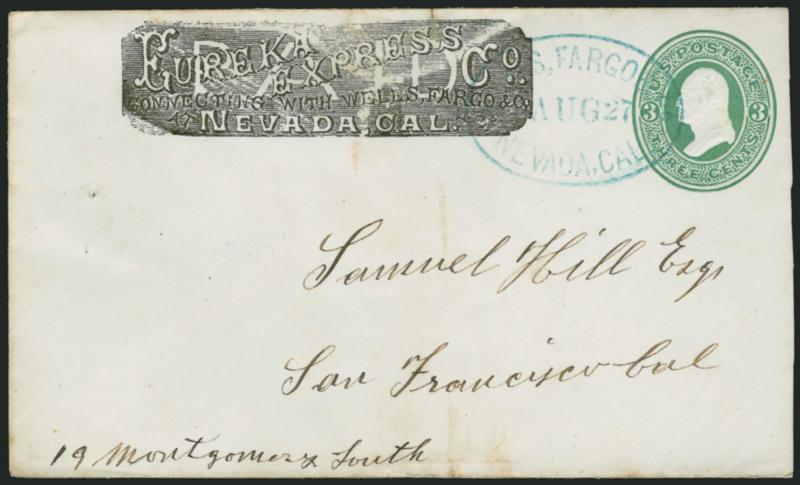 EUREKA
EXPRESS Co.
PAID
CONNECTING WITH WELLS, FARGO & Co.
AT NEVADA, CAL.
S, FARGO
AUG 27
NEVADA, CAL
U.S. POSTAGE
3 3
THREE CENTS
Samuel Hill Esqr
San Francisco Cal
19 Montgomery South